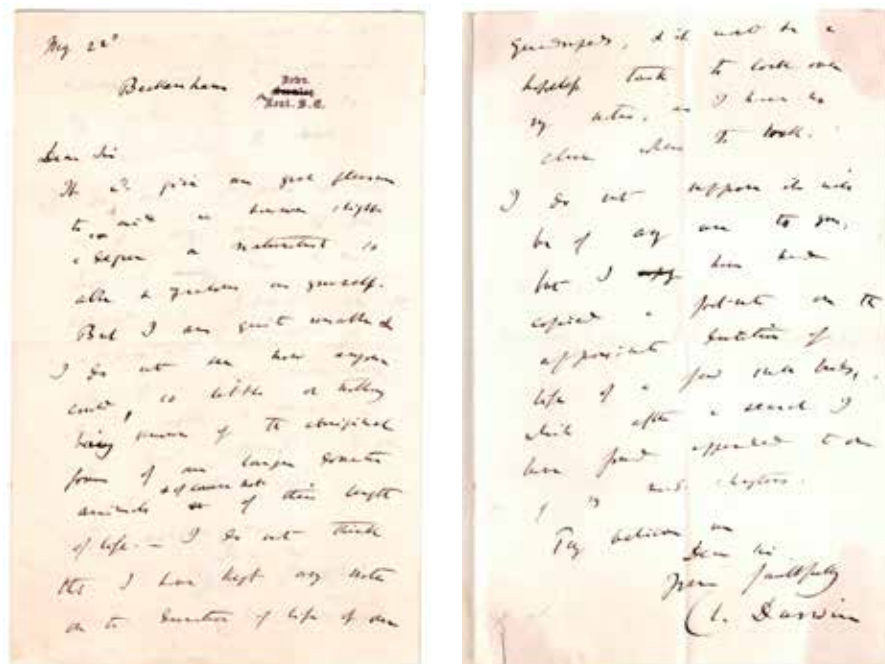 May 22d
Down.
Beckenham
Kent. S.E.
Dear Sir
It wd. give me great pleasure
to in the slightest
degree a naturalist so
able & zealous as yourself.
But I am quite unable &
I do not see how anyone
could, so little or nothing
being known of the aboriginal
forms of our larger domestic
animals & of course not of their length
of life.— I do not think
tht I have kept any note
on the duration of life of our
quadrupeds, & it wd be a
hopeless task to look over
my notes, as I have no
clue where to look.
I do not suppose it will
be of any use to you,
but I have had
copied a foot-note on the
approximate duration of
life of a few birds,
which after a search I
have found appended to one
of my chapters.
Pray believe me
Dear Sir
Yours faithfully
Ch. Darwin